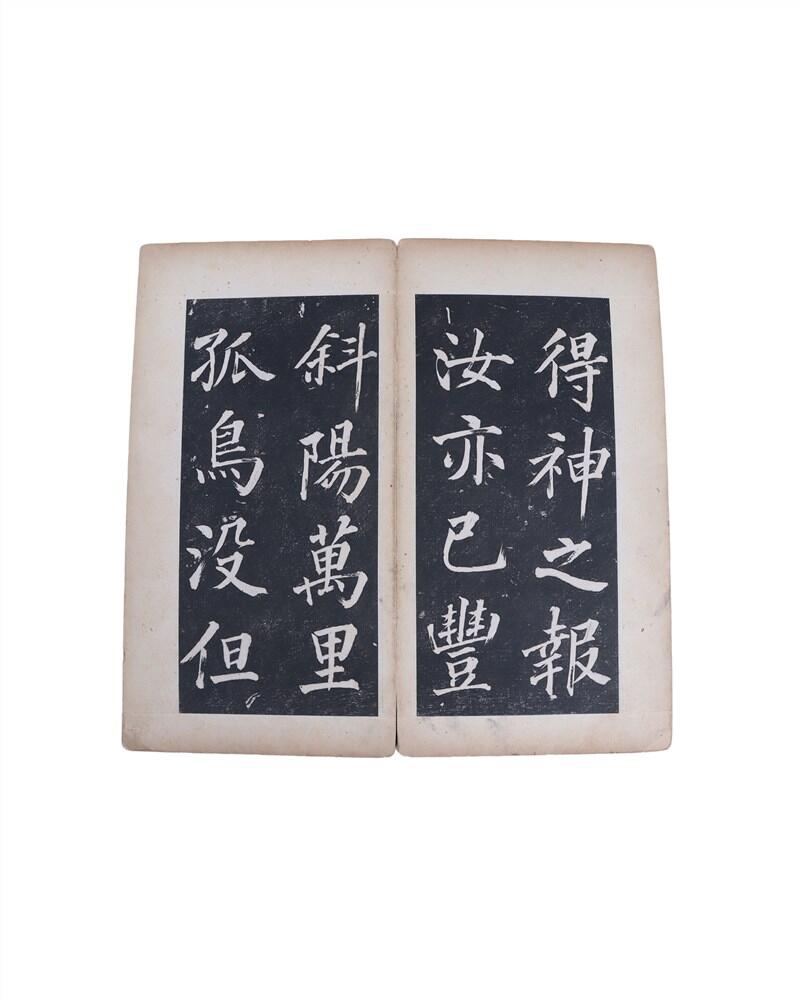 得神之報
汝亦已豐
斜陽萬里
孤鳥没但